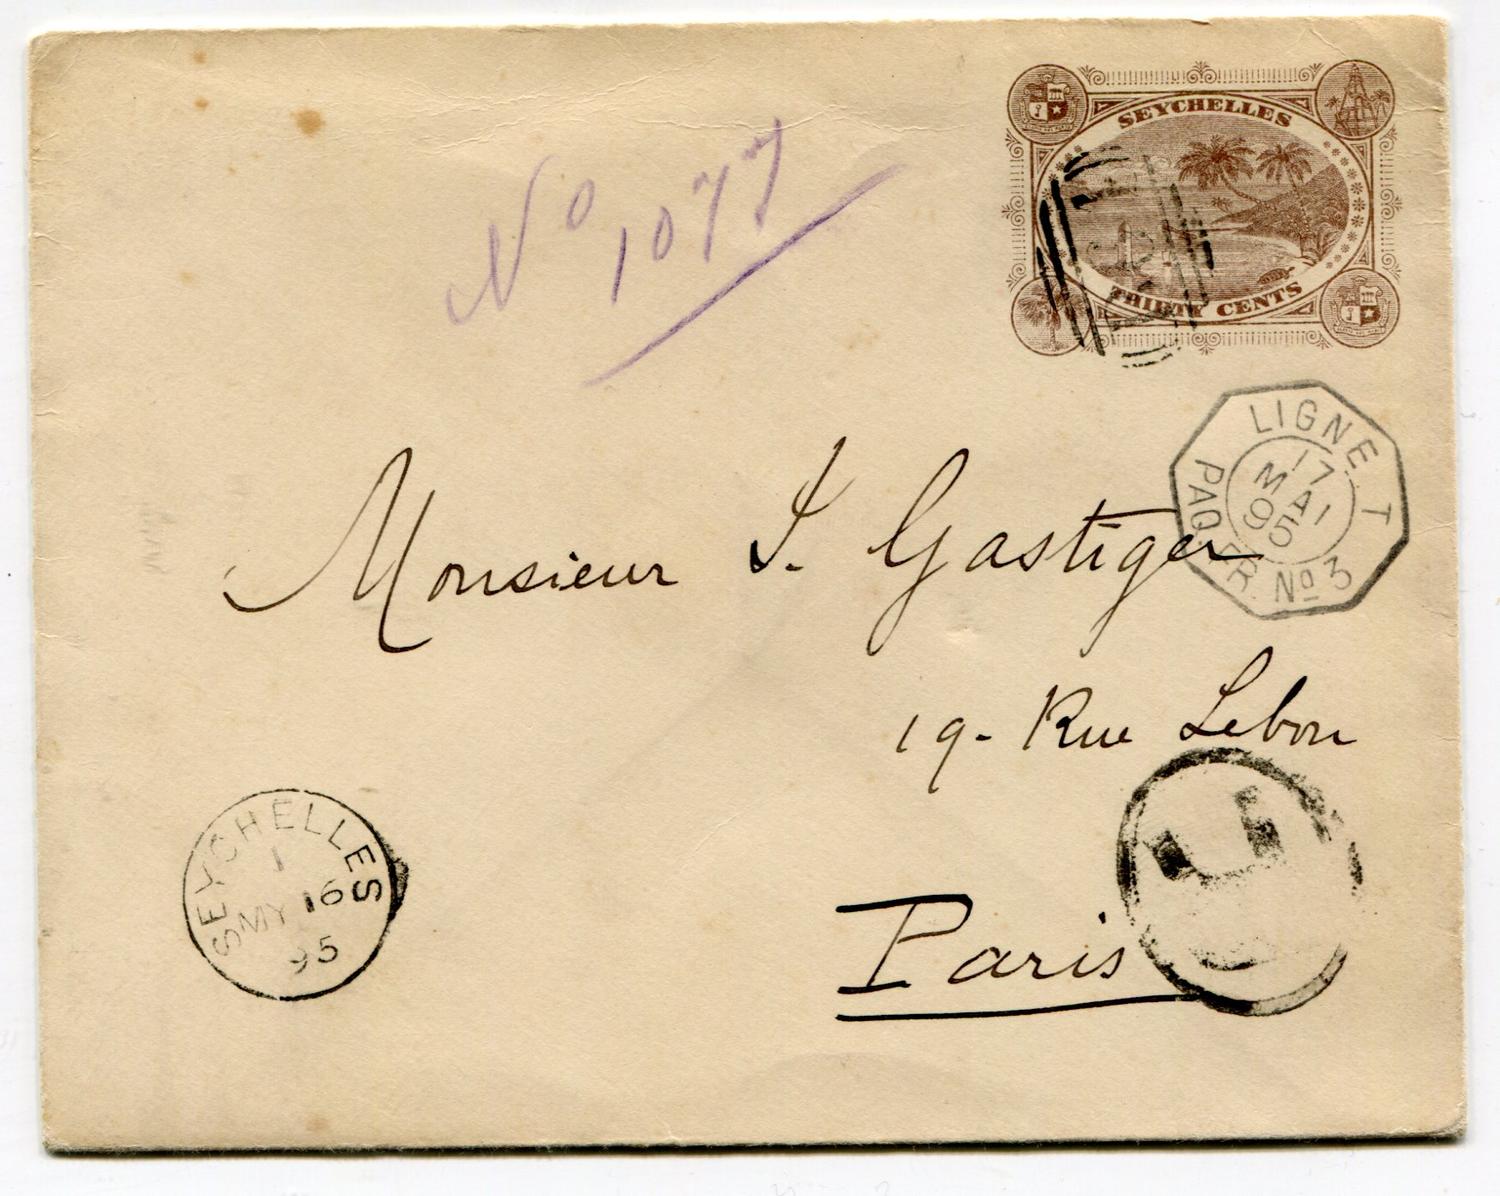 SEYCHELLES
THIRTY CENTS
No 1077
LIGNE T
17
MAI
95
PAQ. FR. No 3
Monsieur J. Gastiger
19- Rue Lebon
Paris
SEYCHELLES
1
MY 16
95